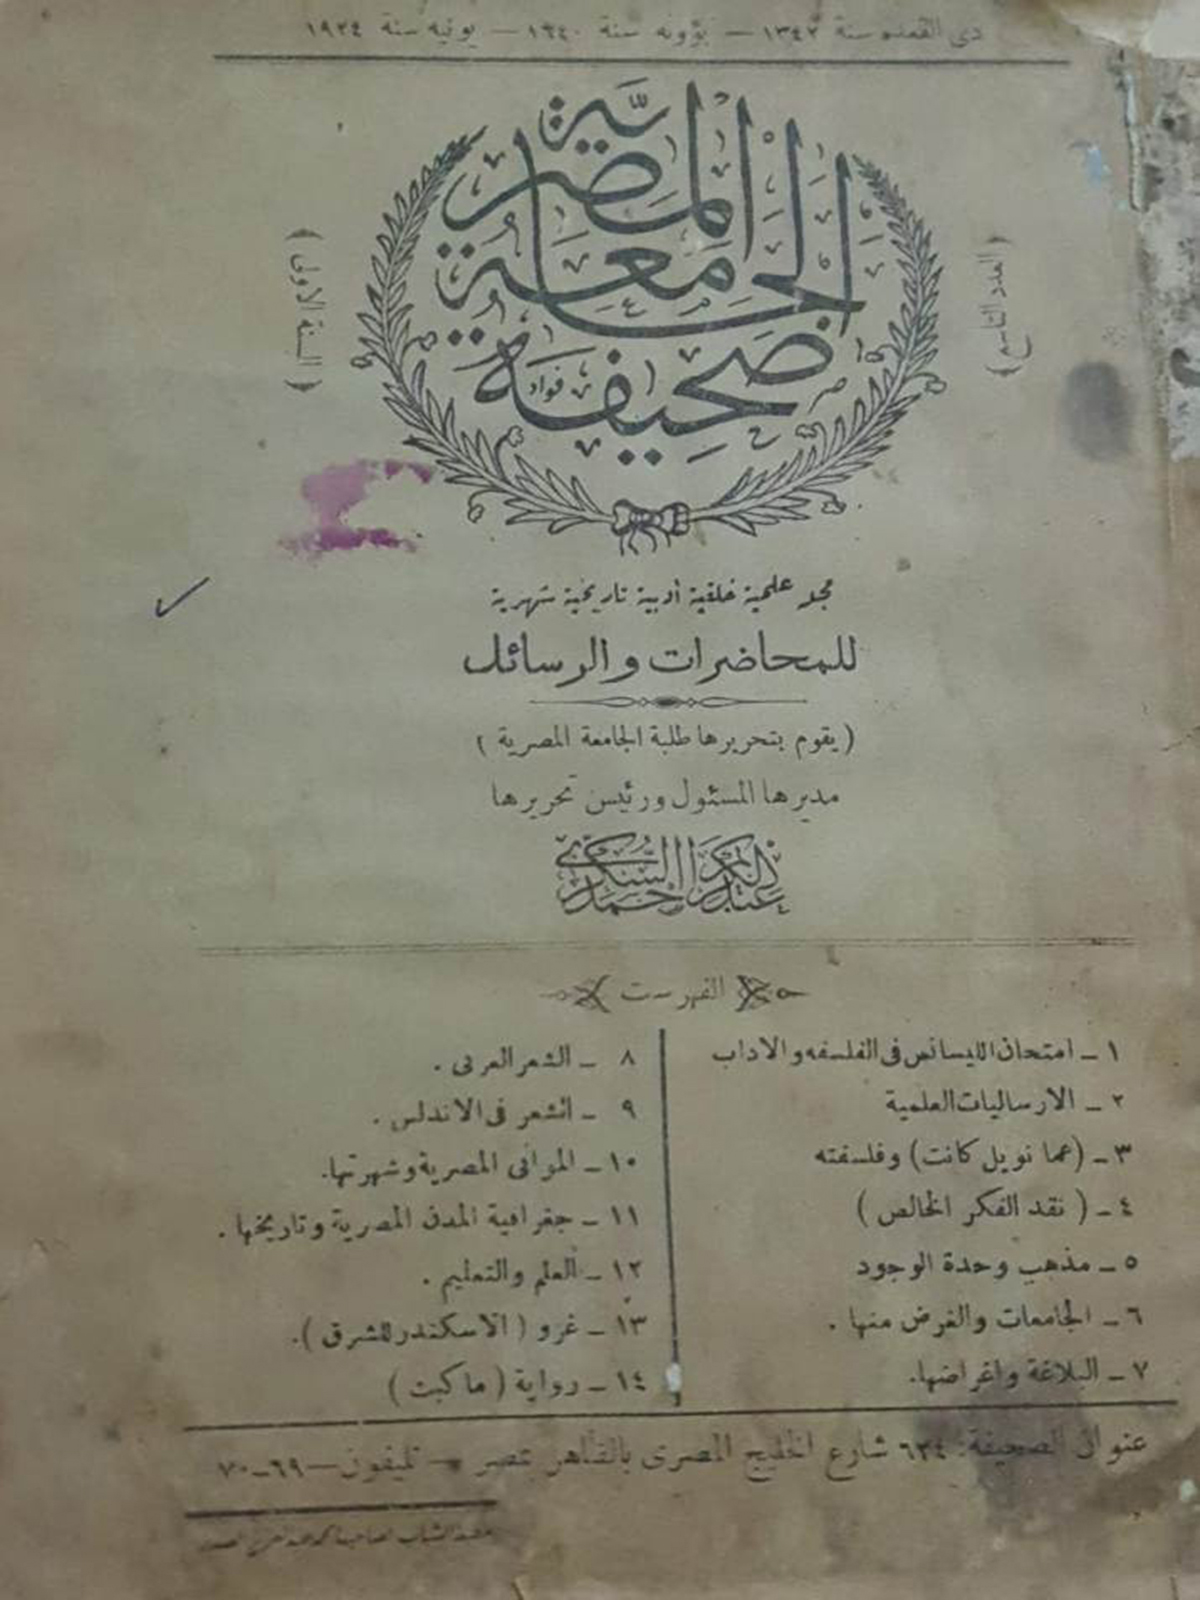 ذى القعده سنة ١٣٤٢ — بؤونه سنة ١٦٤٠ — يونيه سنة ١٩٢٤
صحيفة
الجامعة
المصرية
فؤاد
(العدد التاسع)
(السنة الاولى)
مجلة علمية خلقية أدبية تاريخية شهرية
للمحاضرات والرسائل
(يقوم بتحريرها طلبة الجامعة المصرية)
مديرها المسئول ورئيس تحريرها
عبد الكريم احمد السكرى
الفهرست
١ ـ امتحان الليسانس فى الفلسفه والاداب
٢ ـ الارساليات العلمية
٣ ـ (عما نويل كانت) وفلسفته
٤ ـ ( نقد الفكر الخالص )
٥ ـ مذهب وحدة الوجود
٦ ـ الجامعات والغرض منها .
٧ ـ البلاغة واغراضها.
٨ ـ الشعر العربى .
٩ ـ الشعر فى الاندلس .
١٠ ـ الموانى المصرية وشهرتها.
١١ ـ جغرافية المدن المصرية وتاريخها .
١٢ ـ العلم والتعليم .
١٣ ـ غزو ( الاسكندر للشرق ).
١٤ ـ رواية ( ماكبث )
عنوان الصحيفة: ٦٣٤ شارع الخليج المصرى بالقاهر بمصر — تليفون — ٦٩ ـ ٧٠
الشباب